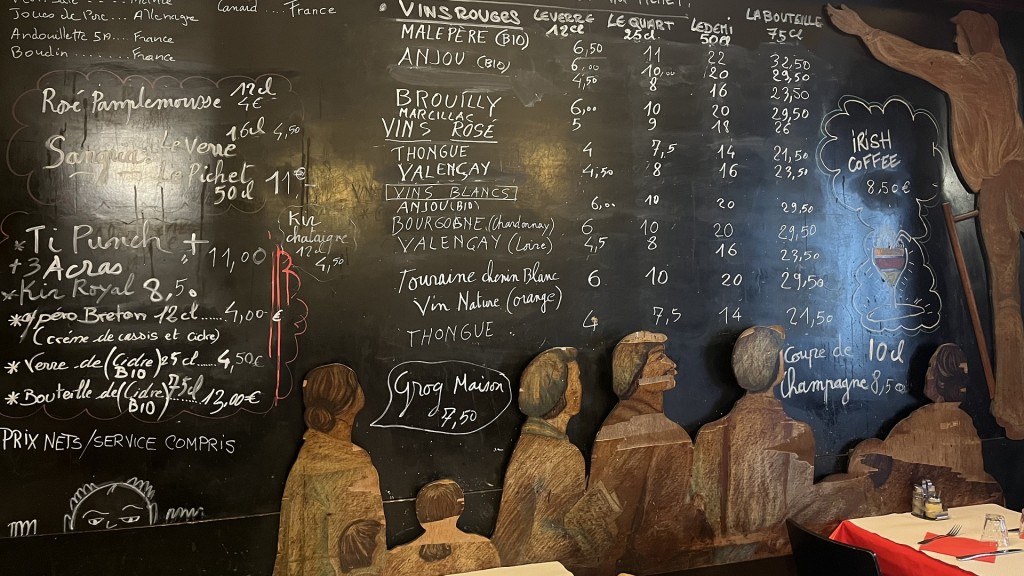 Joues de Porc ... Allemagne
Andouillette 5A ..... France
Boudin ............ France
Canard ..... France
Rosé Pamplemousse 12cl 4€
Sangria Le Verre 16cl 4,50
Le Pichet 50cl 11€
Kir chataigne 12cl 4,50
* Ti Punch + 3 Acras 11,00
* Kir Royal 8,50
* Apéro Breton 12cl ..... 4,00 €
(crème de cassis et cidre)
* Verre de (Cidre BIO) 25cl ..... 4,50€
* Bouteille de (Cidre BIO) 75cl ....... 13,00€
PRIX NETS/SERVICE COMPRIS
• VINS ROUGES LE VERRE 12cl LE QUART 25cl LE DEMI 50cl LA BOUTEILLE 75cl
MALEPÈRE (BIO) 6,50 11 22 32,50
ANJOU (BIO) 6,00 10,00 20 29,50
4,50 8 16 23,50
BROUILLY 6,00 10 20 29,50
MARCILLAC 5 9 18 26
VINS ROSÉ
THONGUE 4 7,5 14 21,50
VALENÇAY 4,50 8 16 23,50
VINS BLANCS
ANJOU (BIO) 6,00 10 20 29,50
BOURGOGNE (Chardonnay) 6 10 20 29,50
VALENÇAY (Loire) 4,5 8 16 23,50
Touraine chenin Blanc 6 10 20 29,50
Vin Nature (orange)
THONGUE 4 7,5 14 21,50
Grog Maison
7,50
IRISH
COFFEE
8,50€
Coupe de 10cl
Champagne 8,50